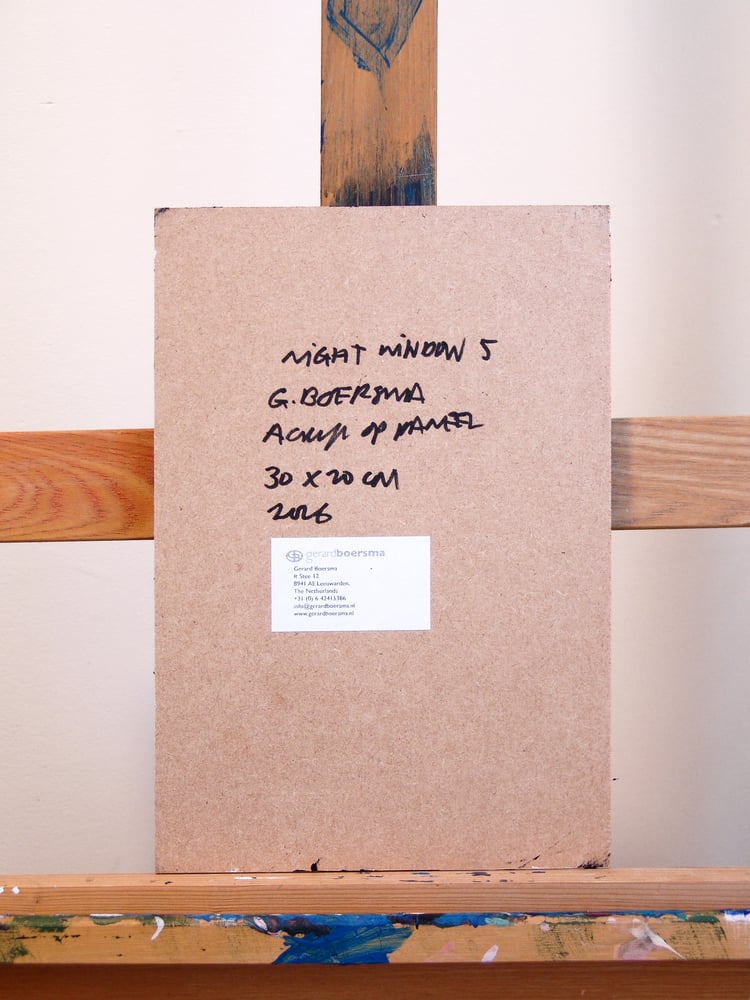 NIGHT WINDOW 5
G. BOERSMA
ACRYL OP PANEEL
30 X 20 CM
2026
gerardboersma
Gerard Boersma
It Stee 12
8941 AE Leeuwarden,
The Netherlands
+31 (0) 6 42415386
info@gerardboersma.nl
www.gerardboersma.nl